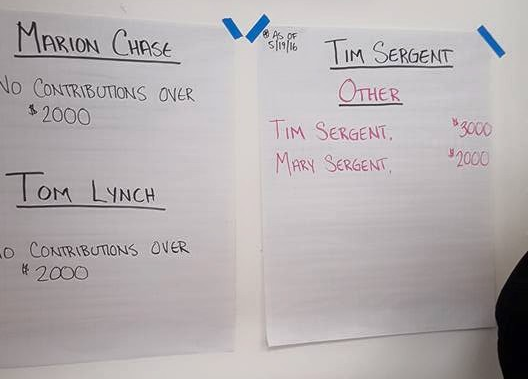 MARION CHASE
NO CONTRIBUTIONS OVER
$2000
TOM LYNCH
NO CONTRIBUTIONS OVER
$2000
* AS OF
5/19/16
TIM SERGENT
OTHER
TIM SERGENT. $3000
MARY SERGENT. $2000